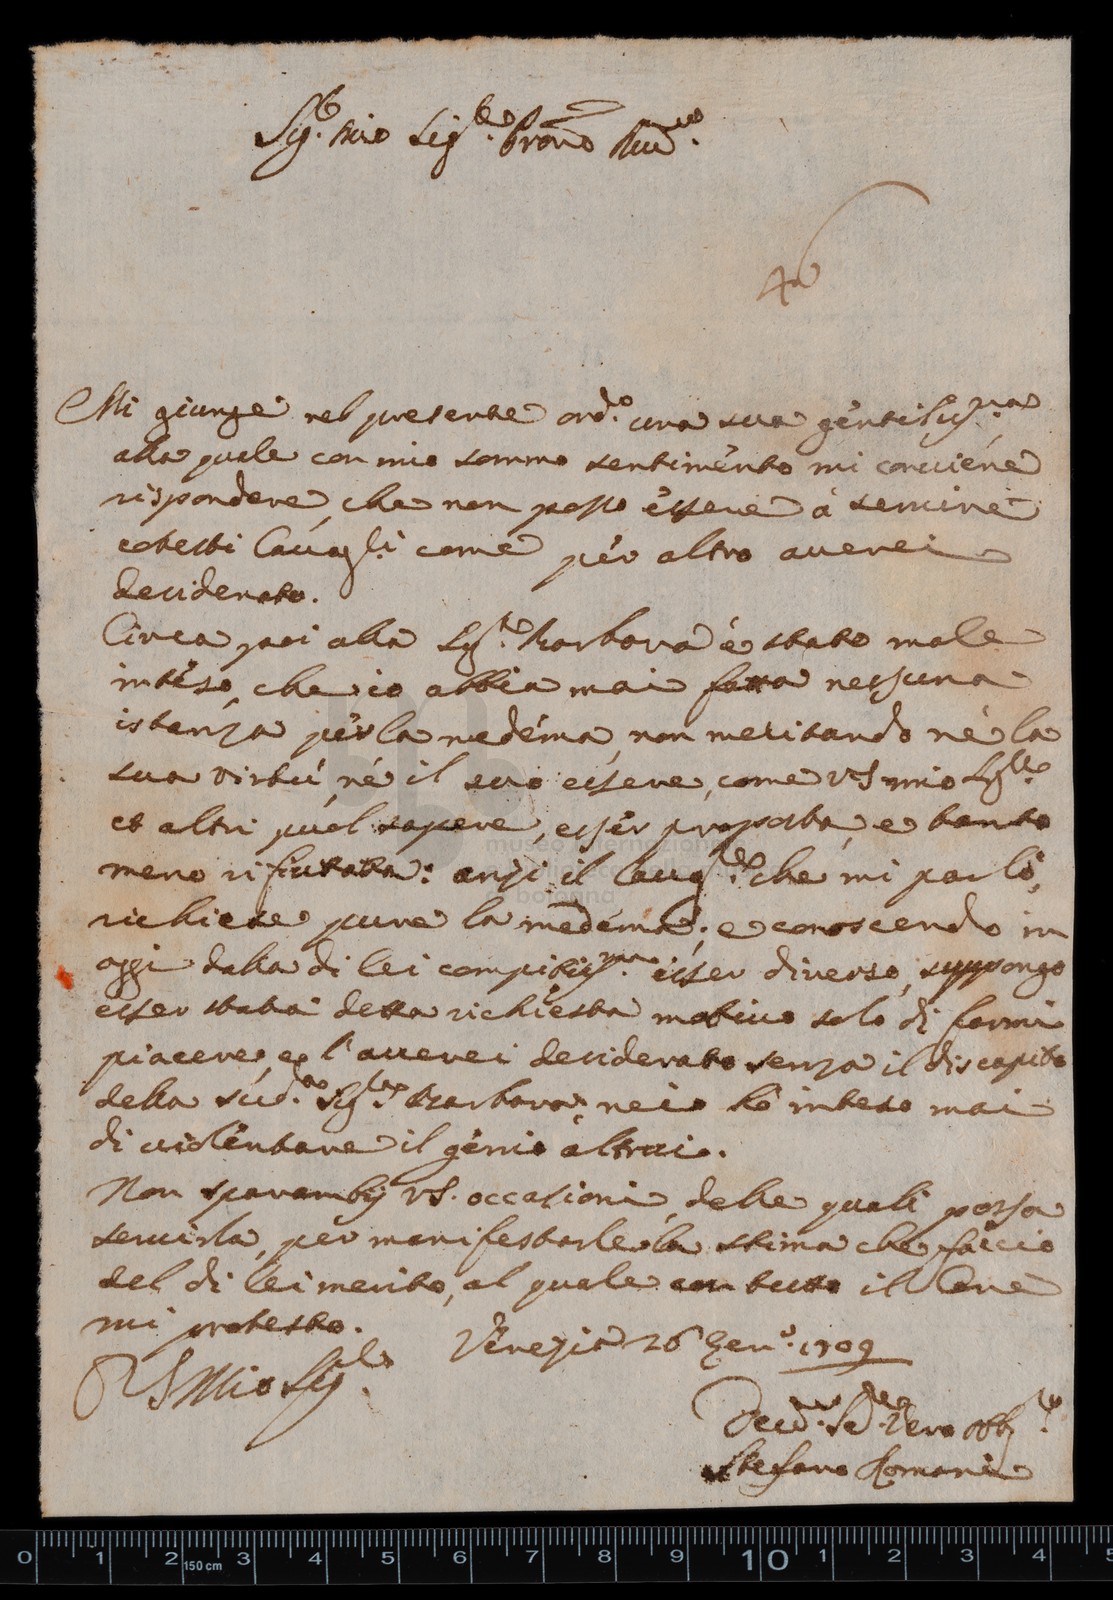 Sig.r mio Sig.re Pron̄o Riu.mo
46
Mi giunge nel presente ord.o una sua gentiliss.ma
alla quale con mio sommo sentimento mi conviene
rispondere, che non posso essere à servire
cotesti Cavag.li come per altro averei
desiderato.
Circa poi alla Sig.ra Barbara è stato male
inteso, che io abbia mai fatta nessuna
istanza per la medéma, non meritando né la
sua virtù, né il suo essere, come VS mio Sig.re
et altri puol sapere, esser proposta, e tanto
meno rifiutata: anzi il Cavag.re che mi parlò,
richiese pure la medéma; e conoscendo in
oggi dalla di lei compitiss.ma esser diverso, suppongo
esser stata detta richiesta motivo solo di farmi
piacere, e l'averei desiderato senza il discapito
della sud.a Sig.ra Barbara, ne io hò inteso mai
di violentare il genio altrui.
Non sparambij VS. occasioni, delle quali possa
servirla, per manifestarle la stima che faccio
del di lei merito, al quale con tutto il Core
mi protesto.
Venezia 26 Gen.o 1709
VS Mio Sig.re
Deu.mo Se.re Vero Obb.mo
Stefano Romani
museo internazionale
e biblioteca della musica
di bologna
0 1 2 3 4 5 6 7 8 9 10 1 2 3 4 5
150 cm